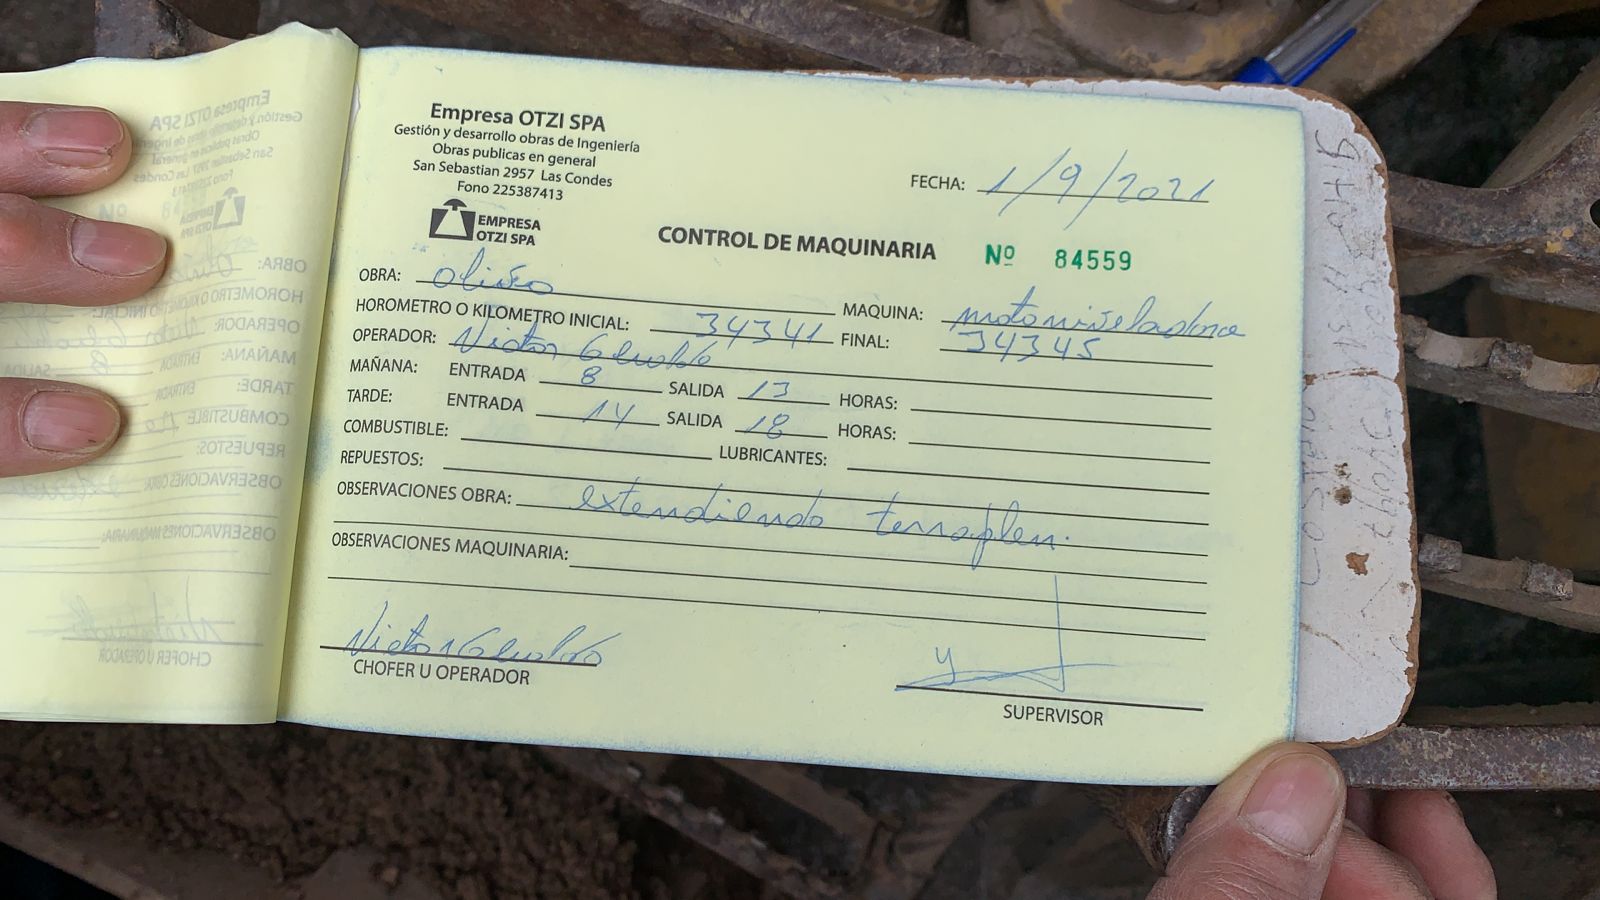 Empresa OTZI SPA
Gestión y desarrollo obras de Ingeniería
Obras publicas en general
San Sebastian 2957 Las Condes
Fono 225387413
EMPRESA
OTZI SPA
FECHA: 1/9/2021
CONTROL DE MAQUINARIA Nº 84559
OBRA:
MAQUINA: motoniveladora
HOROMETRO O KILOMETRO INICIAL: 34341 FINAL: 34345
OPERADOR: Victor
MAÑANA: ENTRADA 8 SALIDA 13 HORAS:
TARDE: ENTRADA 14 SALIDA 18 HORAS:
COMBUSTIBLE: LUBRICANTES:
REPUESTOS:
OBSERVACIONES OBRA: extendiendo terraplen.
OBSERVACIONES MAQUINARIA:
Victor
CHOFER U OPERADOR
SUPERVISOR